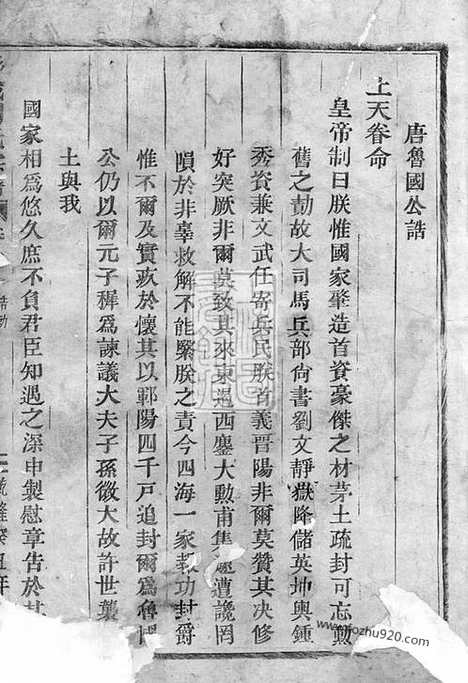 唐魯國公誥
上天眷命
皇帝制曰朕惟國家肇造首資豪傑之材茅土疏封可忘勲
舊之勣故大司馬兵部尙書劉文靜嶽降儲英坤輿鍾
秀資兼文武任寄兵民朕首義晋陽非爾莫贊其决修
好突厥非爾莫致其來東遏西鏖大勲甫集遽遭讒罔
隕於非辜救解不能緊朕之責今四海一家報功封爵
惟不爾及實疚於懷其以鄣陽四千戸追封爾爲魯國
公仍以爾元子穉爲諫議大夫子孫微大故許世襲
土與我
國家相爲悠久庶不負君臣知遇之深申製慰章告於
誥勅
乾隆癸丑年
www.fozhu920.com